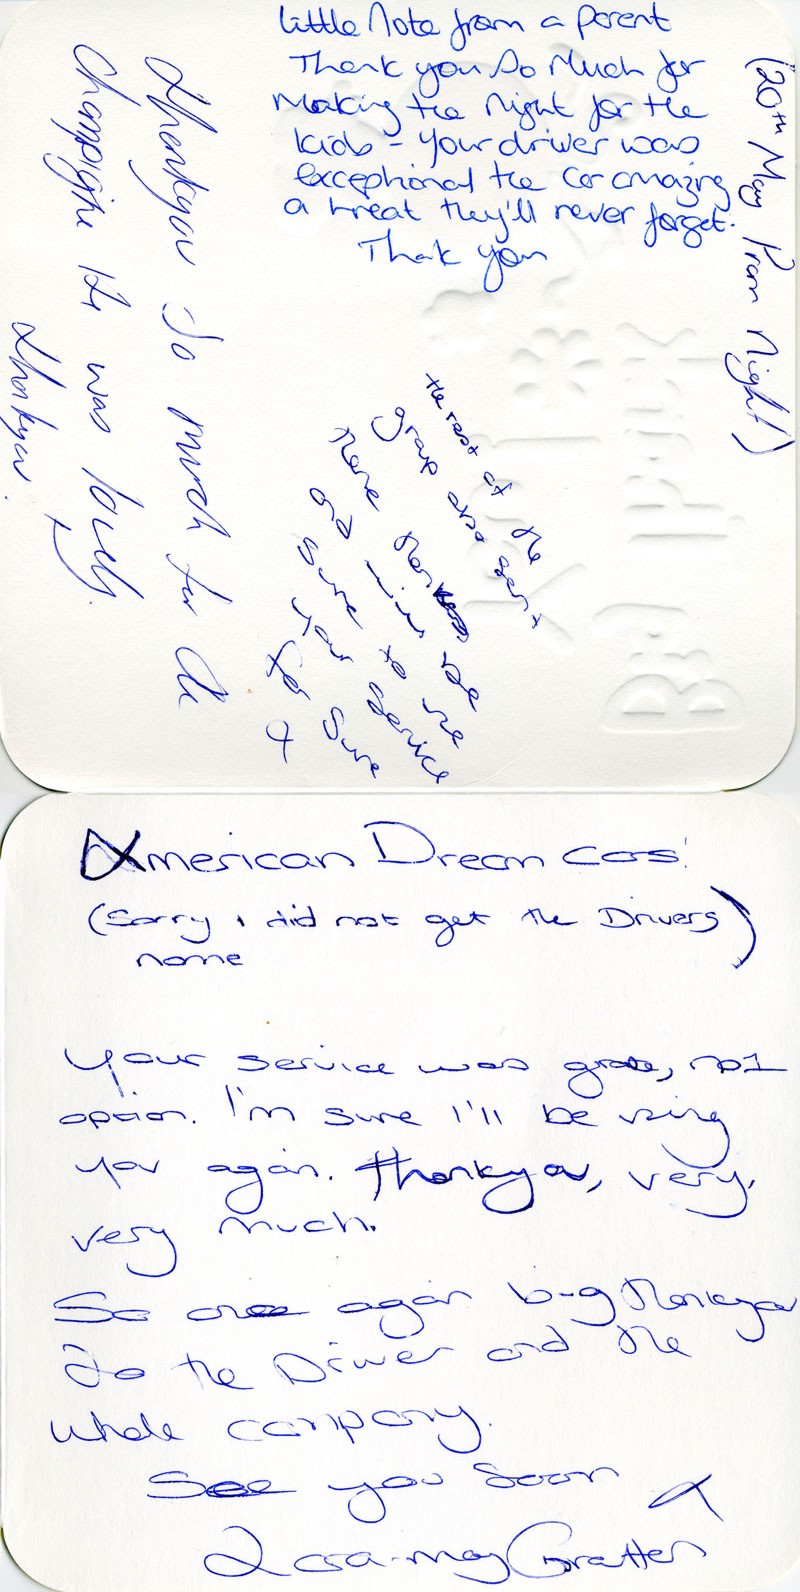 Little Note from a parent
Thank you So Much for
Making the Night for the
kids - your driver was
exceptional the Car amazing
a treat they'll never forget.
Thank you
(20th May Prom Night)
Thankyou So much for the
Champagne It was lovely.
Thankyou.
the rest of the
group also send
there thankyou
and will be
sure to use
your service
for sure
x
American Dream Cars!
(Sorry i did not get the Drivers)
name
Your service was grate, no1
option. I'm sure I'll be using
you again. thankyou, very,
very much.
So once again big thankyou
To the Driver and the
whole company.
See you Soon x
Lara-may Gratten